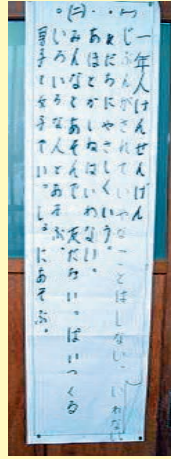 一年人けんせんげん
(一)
じぶんがされていやなことはしない、いわない
ともだちにやさしくいう。
あほとかしねはいわない。
(二)
みんななかよく友だちいっぱいつくる
いろいろな人とあそぶ。
男子と女子でいっしょにあそぶ。